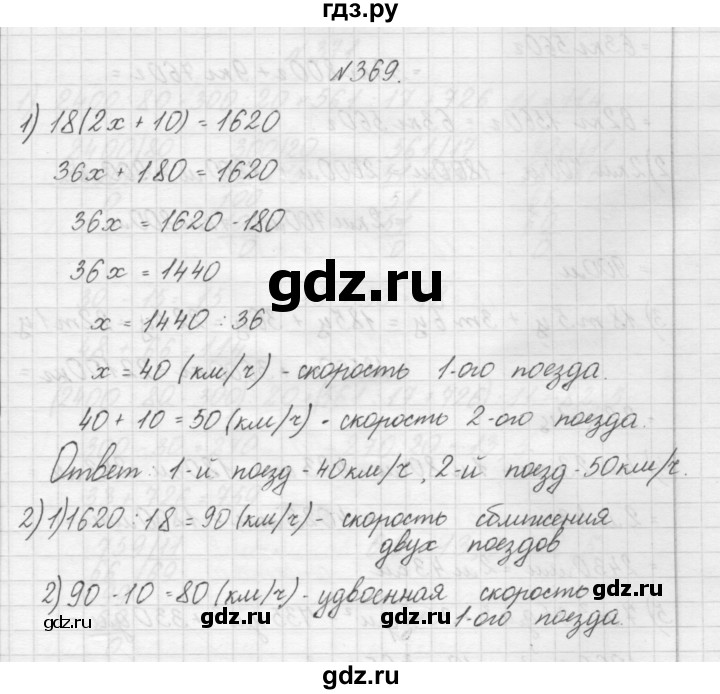 гдз.ру
№369.
1) 18(2x + 10) = 1620
36x + 180 = 1620
36x = 1620 - 180
36x = 1440
gdz.ru
x = 1440 : 36
x = 40 (км/ч) - скорость 1-ого поезда.
40 + 10 = 50 (км/ч) - скорость 2-ого поезда.
Ответ: 1-й поезд - 40км/ч, 2-й поезд - 50км/ч.
2) 1) 1620 : 18 = 90 (км/ч) - скорость сближения
двух поездов
gdz.ru
2) 90 - 10 = 80 (км/ч) - удвоенная скорость
1-ого поезда.
gdz.ru
gdz.ru
gdz.ru
gdz.ru